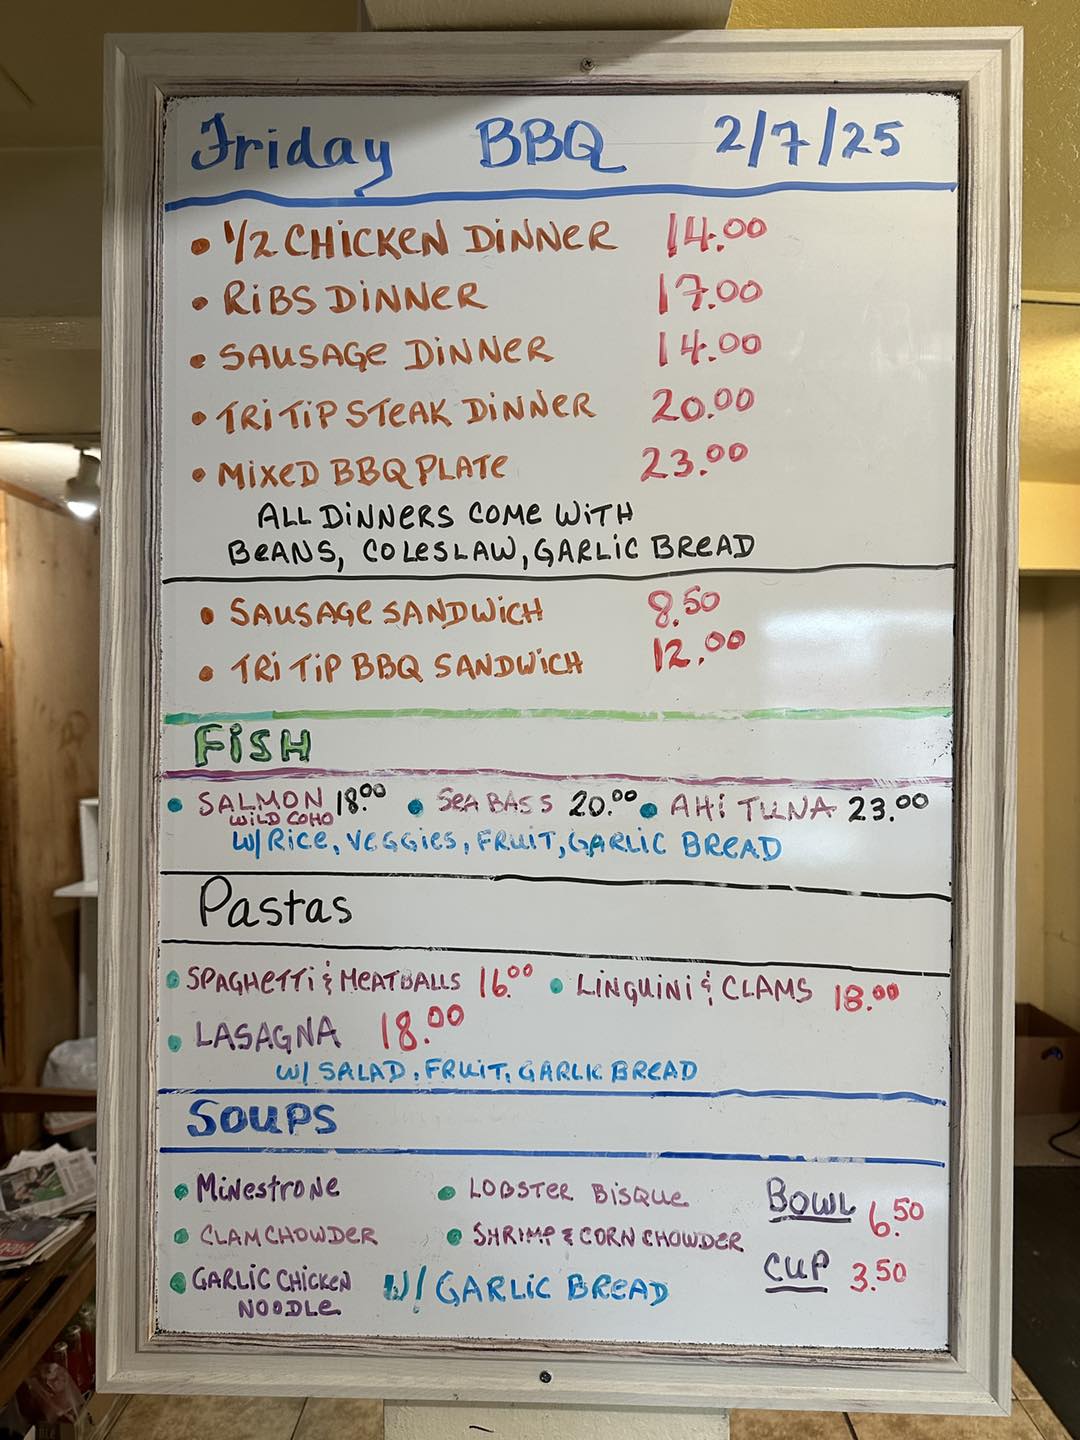 Friday BBQ 2/7/25
• 1/2 CHICKEN DINNER 14.00
• RIBS DINNER 17.00
• SAUSAGE DINNER 14.00
• TRI TIP STEAK DINNER 20.00
• MIXED BBQ PLATE 23.00
ALL DINNERS COME WITH
BEANS, COLESLAW, GARLIC BREAD
• SAUSAGE SANDWICH 8.50
• TRI TIP BBQ SANDWICH 12.00
FISH
• SALMON 18.00 • SEA BASS 20.00 • AHI TUNA 23.00
WILD COHO
W/ RICE, VEGGIES, FRUIT, GARLIC BREAD
Pastas
• SPAGHETTI & MEATBALLS 16.00 • LINGUINI & CLAMS 18.00
• LASAGNA 18.00
W/ SALAD, FRUIT, GARLIC BREAD
SOUPS
• MINESTRONE • LOBSTER BISQUE BOWL 6.50
• CLAM CHOWDER • SHRIMP & CORN CHOWDER
• GARLIC CHICKEN W/ GARLIC BREAD CUP 3.50
NOODLE